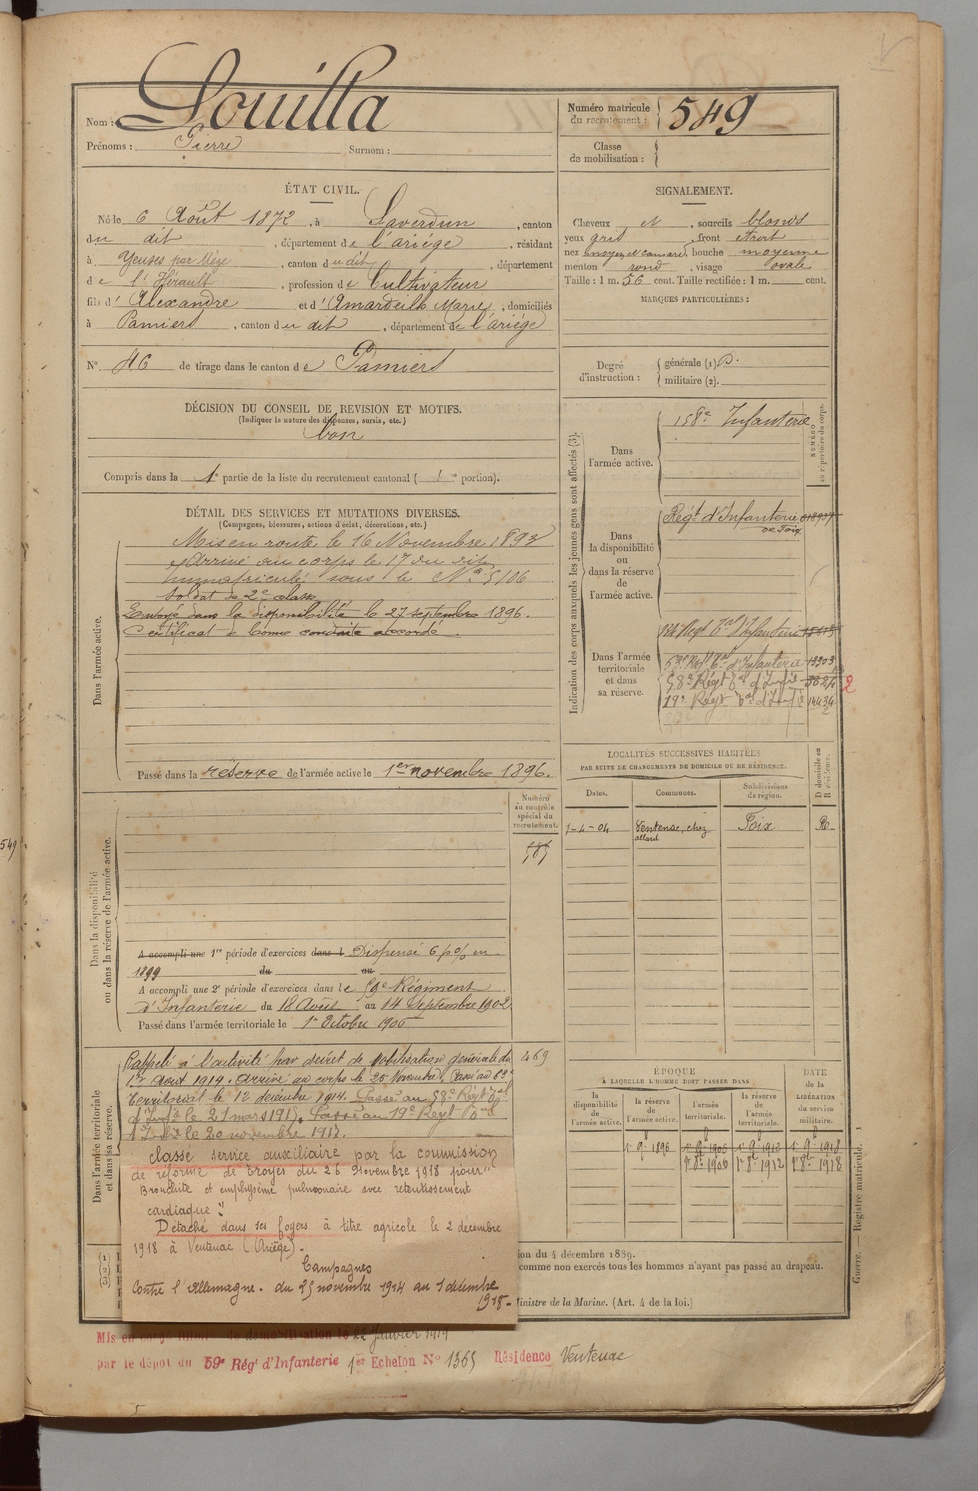 Nom : Louilla
Prénoms : Pierre Surnom :
Numéro matricule du recrutement : 549
Classe de mobilisation :
ÉTAT CIVIL.
Né le 6 Août 1872, à Saverdun, canton
du dit, département de l'ariége, résidant
à Yeuses par Mèze, canton du dit, département
de l'Hérault, profession de Cultivateur
fils d'Alexandre et d'Amardeilh Marie, domiciliés
à Pamiers, canton du dit, département de l'ariége
N° 46 de tirage dans le canton de Pamiers
DÉCISION DU CONSEIL DE REVISION ET MOTIFS.
(Indiquer la nature des dispenses, sursis, etc.)
bon
Compris dans la 1e partie de la liste du recrutement cantonal ( 1e portion).
DÉTAIL DES SERVICES ET MUTATIONS DIVERSES.
(Campagnes, blessures, actions d'éclat, décorations, etc.)
Dans l'armée active.
Mis en route le 16 Novembre 1893
Arrivé au corps le 17 du dit
immatriculé sous le N° 5106
Soldat de 2e classe
Envoyé dans la disponibilité le 27 septembre 1896.
Certificat de bonne conduite accordé.
Passé dans la réserve de l'armée active le 1er novembre 1896.
Numéro au contrôle spécial du recrutement.
Dans la disponibilité ou dans la réserve de l'armée active.
549
A accompli une 1re période d'exercices dans l Dispensé 6 p% en
1899 du au
A accompli une 2e période d'exercices dans le 59e Régiment
d'Infanterie du 18 Août au 14 Septembre 1902
Passé dans l'armée territoriale le 1er Octobre 1906
Dans l'armée territoriale et dans sa réserve.
469
Rappelé à l'activité par décret de Mobilisation générale du
1er Août 1914. Arrivé au corps le 25 Novembre. Passé au 63e
Territorial le 12 décembre 1914. Passé au 58e Regt tal
d'Infie le 21 mars 1917. Passé au 19e Regt tal
d'Infie le 20 novembre 1917.
Classé service auxiliaire par la commission
de réforme de Troyes du 26 novembre 1918 pour "
Bronchite et emphysème pulmonaire avec retentissement
cardiaque"
Détaché dans ses foyers à titre agricole le 2 décembre
1918 à Ventenac (Ariège).
Campagnes
Contre l'Allemagne. du 25 novembre 1914 au 1 décembre
1918-
(1)
(2)
(3)
Mis en congé illimité de démobilisation le 22 Janvier 1919
par le dépôt du 59e Rég d'Infanterie 1er Echelon N° 1365 Résidence Ventenac
SIGNALEMENT.
Cheveux et, sourcils blonds
yeux gris, front étroit
nez moyen et camard, bouche moyenne
menton rond, visage ovale
Taille : 1 m. 56 cent. Taille rectifiée : 1 m. cent.
MARQUES PARTICULIÈRES :
Degré d'instruction :
générale (1)
militaire (2).
Indication des corps auxquels les jeunes gens sont affectés (3).
NUMÉRO au répertoire du corps.
Dans l'armée active.
158e Infanterie
Dans la disponibilité ou dans la réserve de l'armée active.
Régt d'Infanterie
de Foix
Dans l'armée territoriale et dans sa réserve.
Regt tal d'Infanterie
63e Regt tal d'Infanterie 13303
58e Régt tal d'Infie 3824 2
19e Régt tal d'Infie 14434
LOCALITÉS SUCCESSIVES HABITÉES
PAR SUITE DE CHANGEMENTS DE DOMICILE OU DE RÉSIDENCE.
Dates. Communes. Subdivisions de région. D domicile ou R résidence.
1-4-04 Ventenac, chez allard Foix R
ÉPOQUE
À LAQUELLE L'HOMME DOIT PASSER DANS
DATE de la LIBÉRATION du service militaire.
la disponibilité de l'armée active. la réserve de l'armée active. l'armée territoriale. la réserve de l'armée territoriale.
1er 9e 1896 1er 9e 1906 1er 9e 1912 1er 9e 1918
1er 8e 1906 1er 8e 1912 1er 8e 1918
ion du 4 décembre 1889.
comme non exercés tous les hommes n'ayant pas passé au drapeau.
Ministre de la Marine. (Art. 4 de la loi.)
Guerre. — Registre matricule. 1
549